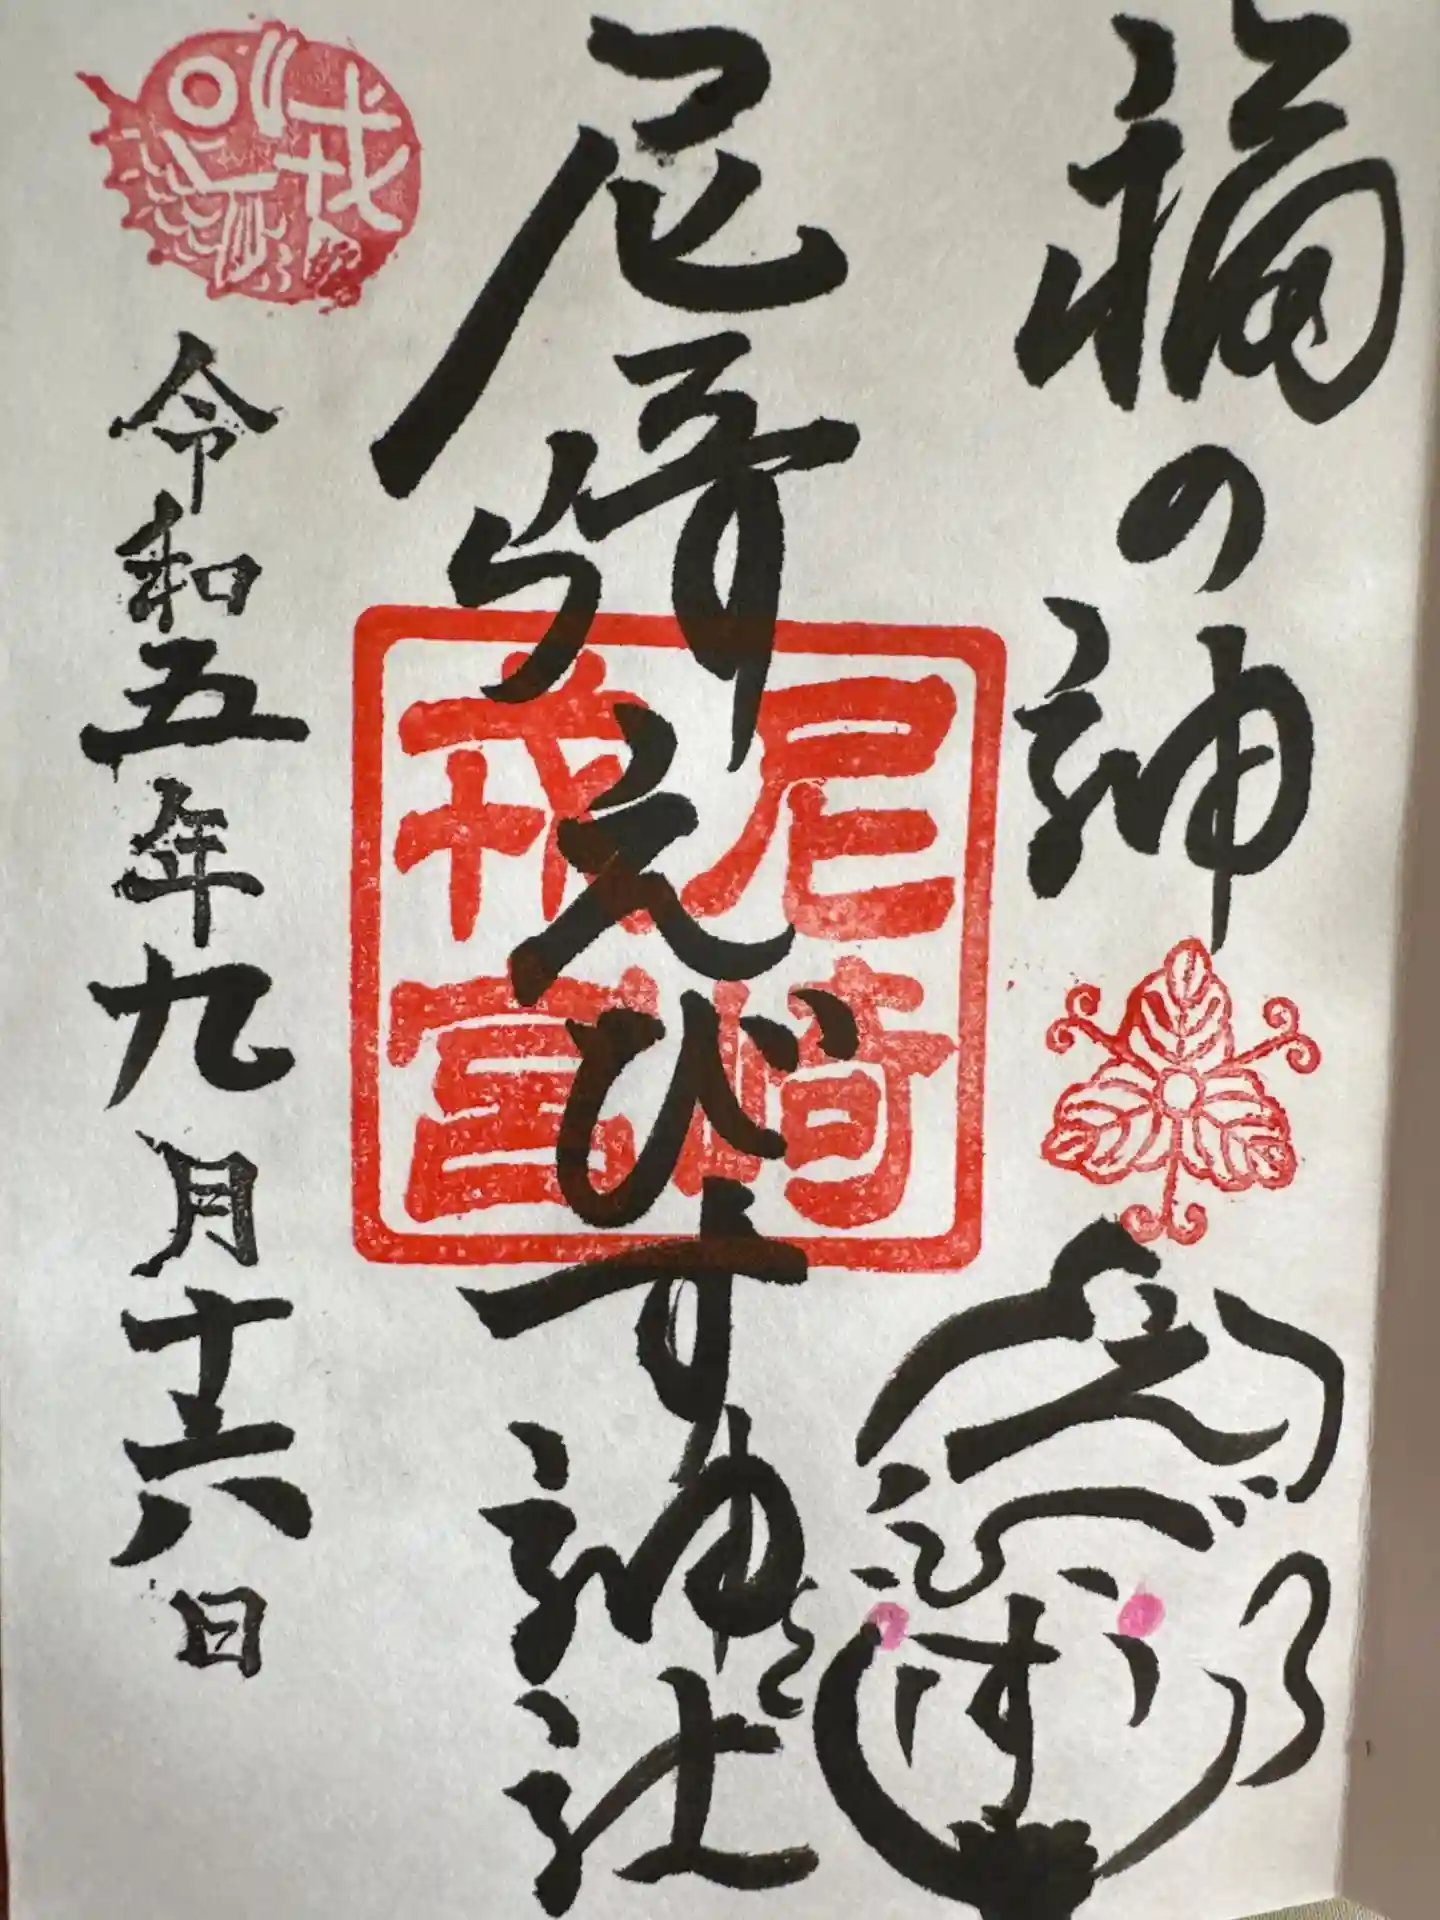 福の神
えびす
尼崎えびす神社
尼崎
戎宮
戎
令和五年九月十六日